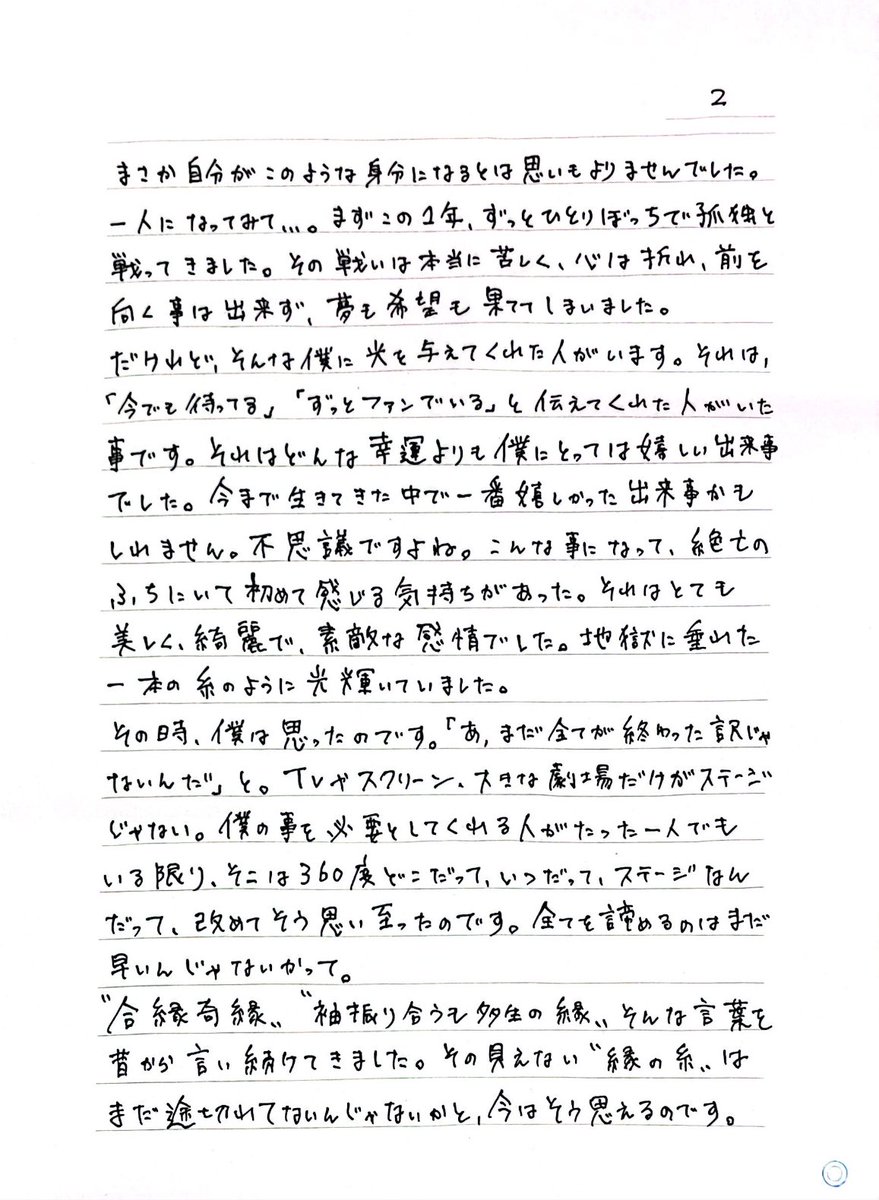 2
まさか自分がこのような身分になるとは思いもよりませんでした。
一人になってみて…。まずこの1年、ずっとひとりぼっちで孤独と
戦ってきました。その戦いは本当に苦しく、心は折れ、前を
向く事は出来ず、夢も希望も果ててしまいました。
だけれど、そんな僕に光を与えてくれた人がいます。それは、
「今でも待ってる」「ずっとファンでいる」と伝えてくれた人がいた
事です。それはどんな幸運よりも僕にとっては嬉しい出来事
でした。今まで生きてきた中で一番嬉しかった出来事かも
しれません。不思議ですよね。こんな事になって、絶亡の
ふちにいて初めて感じる気持ちがあった。それはとても
美しく、綺麗で、素敵な感情でした。地獄に垂れた
一本の糸のように光輝いていました。
その時、僕は思ったのです。「あ、まだ全てが終わった訳じゃ
ないんだ」と。TVやスクリーン、大きな劇場だけがステージ
じゃない。僕の事を必要としてくれる人がたった一人でも
いる限り、そこは360度どこだって、いつだって、ステージなん
だって、改めてそう思い至ったのです。全てを諦めるのはまだ
早いんじゃないかって。
〝合縁奇縁〟〝袖振り合うも多生の縁〟そんな言葉を
昔から言い続けてきました。その見えない〝縁の糸〟は
まだ途切れてないんじゃないかと、今はそう思えるのです。